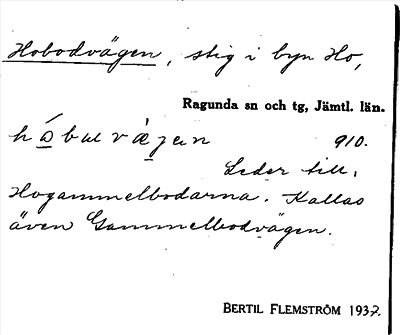 Hobodvägen, stig i byn Ho,
Ragunda sn och tg, Jämtl. län.
910.
Leder till
Hogammelbodarna. Kallas
även Gammelbodvägen.
BERTIL FLEMSTRÖM 1937.